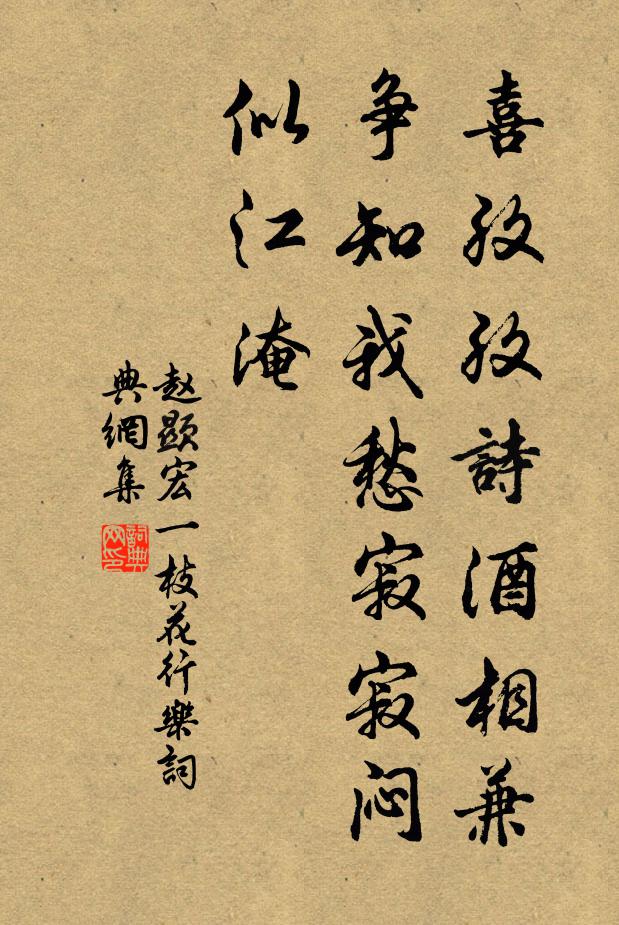 喜孜孜詩酒相兼
争知我愁寂寂闷
似江淹
赵顯宏一枝花行樂詞
典網集
詞典
网印